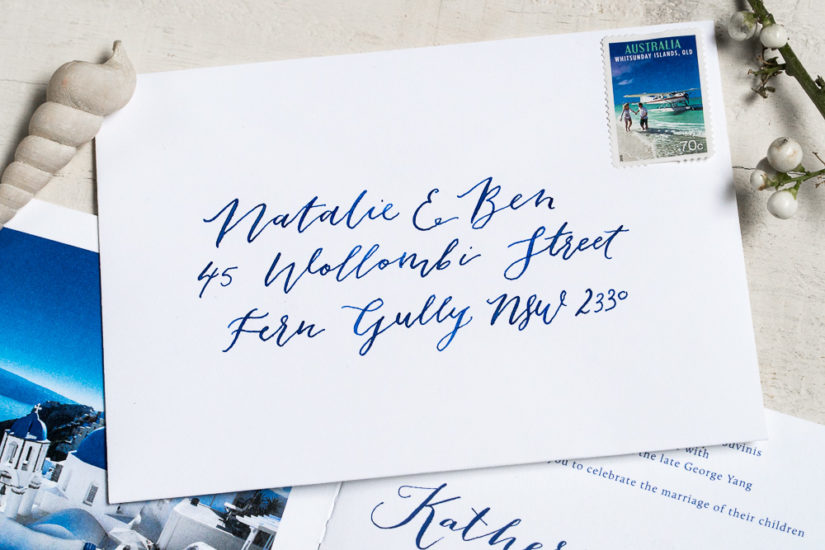 AUSTRALIA
WHITSUNDAY ISLANDS, QLD
70c
Natalie & Ben
45 Wollombi Street
Fern Gully NSW 2330
with
the late George Yang
you to celebrate the marriage of their children